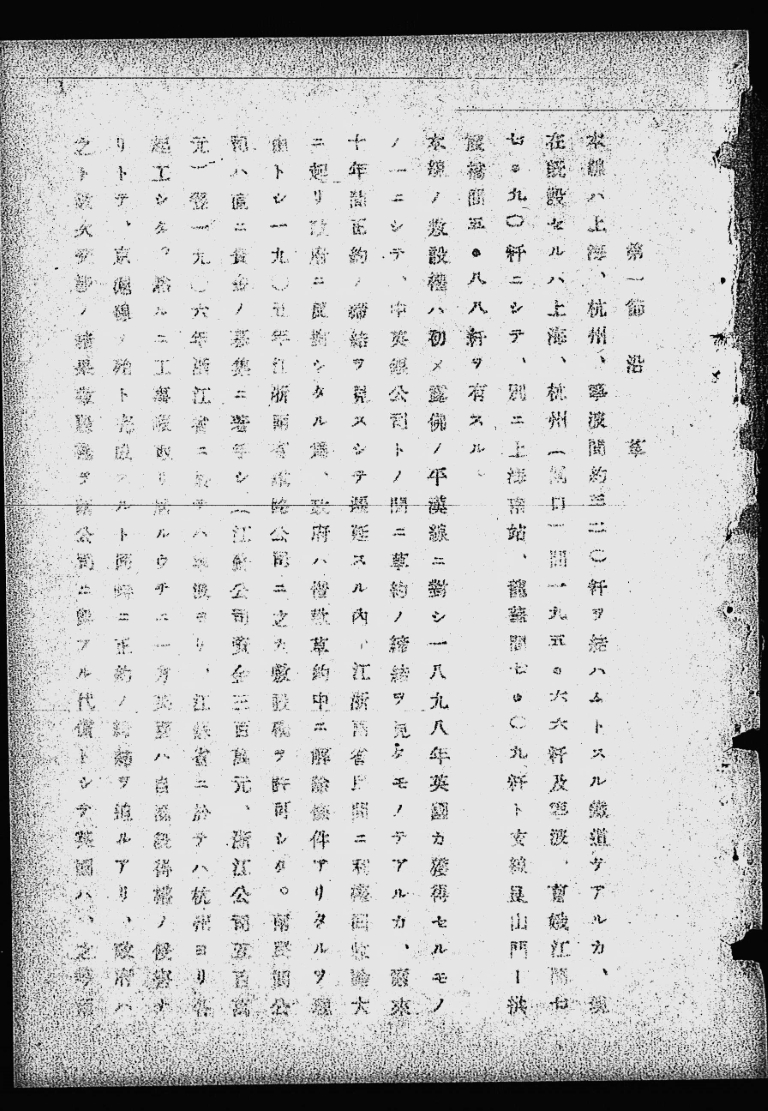 第一節　沿　　革
本線ハ上海、杭州、寧波間約三二〇粁ヲ結ハムトスル鐵道テアルカ、現
在既設セルハ上海、杭州（閘口）間一九五。六六粁及寧波、曹娥江間七
七。九〇粁ニシテ、別ニ上海南站、龍華間七。〇九粁ト支線昆山門ー拱
宸橋間五。八八粁ヲ有スル。
本線ノ敷設權ハ初メ露佛ノ平漢線ニ對シ一八九八年英國カ獲得セルモノ
ノ一ニシテ、中英銀公司トノ間ニ草約ノ締結ヲ見タモノテアルカ、爾來
十年間正約ノ締結ヲ見スシテ遷延スル内、江浙兩省民間ニ利權回收論大
ニ起リ政府ニ反對シタル爲、政府ハ草約中ニ解除條件アリタルヲ理
由トシ一九〇五年江浙兩省鐵路公司ニ之カ敷設權ヲ許可シタ。兩民間公
司ハ直ニ資金ノ募集ニ着手シ、（江蘇公司資金三百萬元、浙江公司五百萬
元）翌一九〇六年浙江省ニ於テハ寧波ヨリ、江蘇省ニ於テハ杭州ヨリ各
起工シタ。然ルニ工事ルウチニ一方英國ハ自國既得權ノ侵害ナ
リトテ、京滬線ノ完成スルト同時ニ正約ノ締結ヲ迫ルアリ、政府ハ
之ト數次ヲ ノ結果ヲ公司ニ與フル代償トシテ英國ハ、